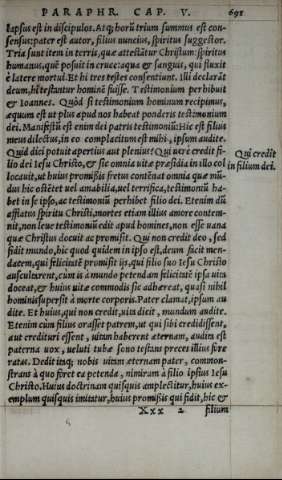 PARAPHR. CAP. V. 691
lapsus est in discipulos. Atq; horũ trium summus est con-
sensus: pater est autor, filius nuncius, spiritus suggestor.
Tria sunt item in terris, quæ attestãtur Christum: spiritus
humanus, quẽ posuit in cruce: aqua & sanguis, qui fluxit
è latere mortui. Et hi tres testes consentiunt. Illi declarãt
deum, hi testantur hominẽ fuisse. Testimonium perhibuit
& Ioannes. Quòd si testimonium hominum recipimus,
æquum est ut plus apud nos habeat ponderis testimonium
dei. Manifestũ est enim dei patris testimoniũ: Hic est filius
meus dilectus, in eo complacitum est mihi, ipsum audite.
Quid dici potuit apertius aut plenius? Qui uerè credit fi-
Qui credit
in filium dei.
lio dei Iesu Christo, & sic omnia uitæ præsidia in illo col
locauit, ut huius promißis fretus contẽnat omnia quæ mũ-
dus hic ostẽtet uel amabilia, uel terrifica, testimoniũ ha-
bet in se ipso, ac testimoniũ perhibet filio dei. Etenim dũ
afflatus spiritu Christi, mortes etiam illius amore contem-
nit, non leue testimoniũ edit apud homines, non esse uana
quæ Christus docuit ac promisit. Qui non credit deo, sed
fidit mundo, hic quod quidem in ipso est, deum facit men-
dacem, qui felicitatẽ promisit ijs, qui filio suo Iesu Christo
auscultarent, cum is à mundo petendam felicitatẽ ipsa uita
doceat, & huius uitæ commodis sic adhæreat, quasi nihil
homini supersit à morte corporis. Pater clamat, ipsum au
dite. Et huius, qui non credit, uita dicit, mundum audite.
Etenim cum filius orasset patrem, ut qui sibi credidissent,
aut credituri essent, uitam haberent æternam, audita est
paterna uox, ueluti tubæ sono testans preces illius fuisse
ratas. Dedit itaq; nobis uitam æternam pater, common-
strans à quo foret ea petenda, nimirum à filio ipsius Iesu
Christo. Huius doctrinam quisquis amplectitur, huius ex-
emplum quisquis imitatur, huius promißis qui fidit, hic &
Xxx 2 filium